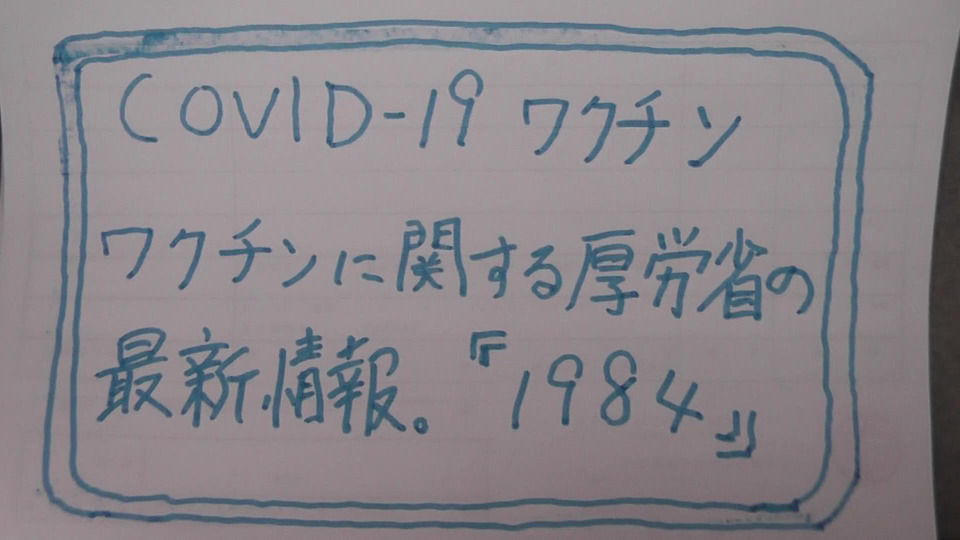 COVID-19 ワクチン
ワクチンに関する厚労省の
最新情報。『1984』